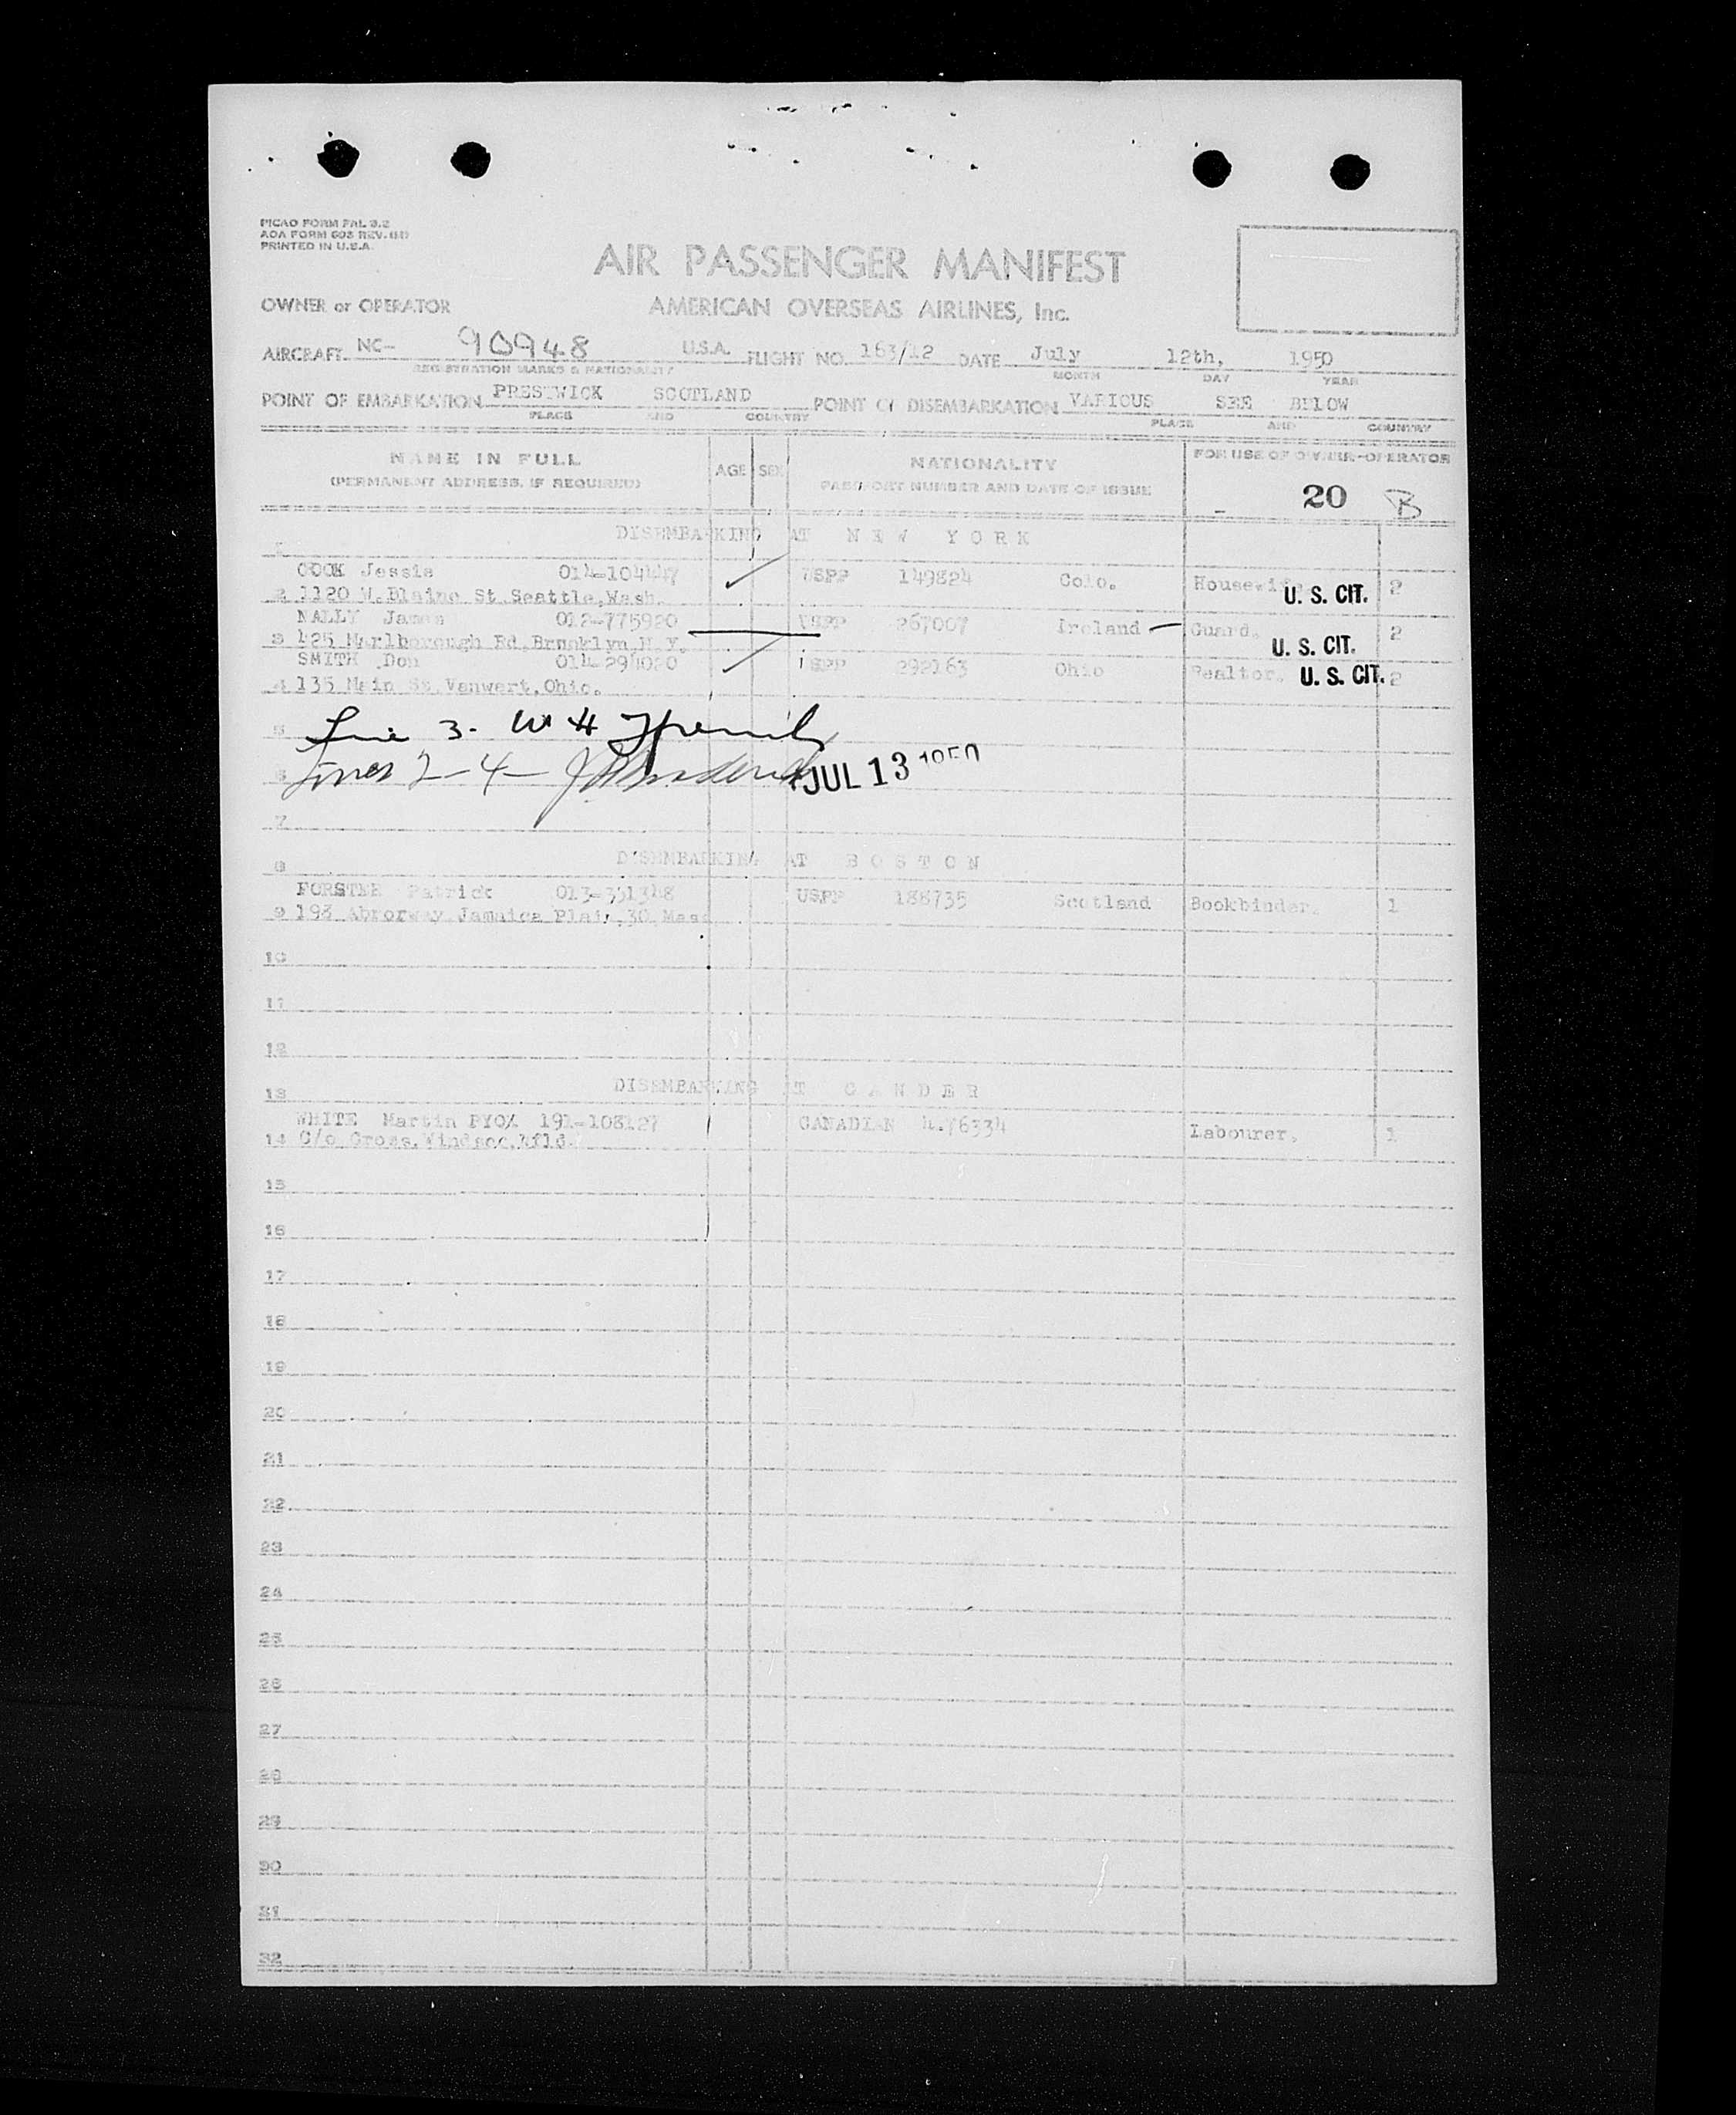 PICAO FORM FAL 2.2
AOA FORM 603 REV.
PRINTED IN U.S.A.
AIR PASSENGER MANIFEST
OWNER or OPERATOR AMERICAN OVERSEAS AIRLINES, Inc.
AIRCRAFT NC- 90948 U.S.A. FLIGHT NO. 163/12 DATE July 12th, 1950
REGISTRATION MARKS & NATIONALITY MONTH DAY YEAR
POINT OF EMBARKATION PRESTWICK SCOTLAND POINT OF DISEMBARKATION VARIOUS SEE BELOW
PLACE AND COUNTRY PLACE AND COUNTRY
NAME IN FULL AGE SEX NATIONALITY FOR USE OF OWNER-OPERATOR
(PERMANENT ADDRESS, IF REQUIRED) PASSPORT NUMBER AND DATE OF ISSUE 20 B
1 DISEMBARKING AT N E W Y O R K
COOK Jessie 014-104447 USPP 149824 Colo. Housewife U. S. CIT. 2
2 1120 W.Blaine St.Seattle,Wash.
NALLY James 012-775920 USPP 267007 Ireland Guard. U. S. CIT. 2
3 425 Marlborough Rd.Brooklyn.N.Y.
SMITH Don 014-294020 USPP 292163 Ohio Realtor. U. S. CIT. 2
4 135 Main St.Vanwert.Ohio.
5 Line 3. W H
6 Lines 2-4- JUL 13 1950
7
8 DISEMBARKING AT B O S T O N
FORSTER Patrick 013-351348 USPP 188735 Scotland Bookbinder. 1
9 193 Abrorway Jamaica Plain,30,Mass
10
11
12
13 DISEMBARKING AT G A N D E R
WHITE Martin PYOX 191-108127 CANADIAN 4.76334 Labourer. 1
14 C/o Gross,Windsor,Nfld.
15
16
17
18
19
20
21
22
23
24
25
26
27
28
29
30
31
32